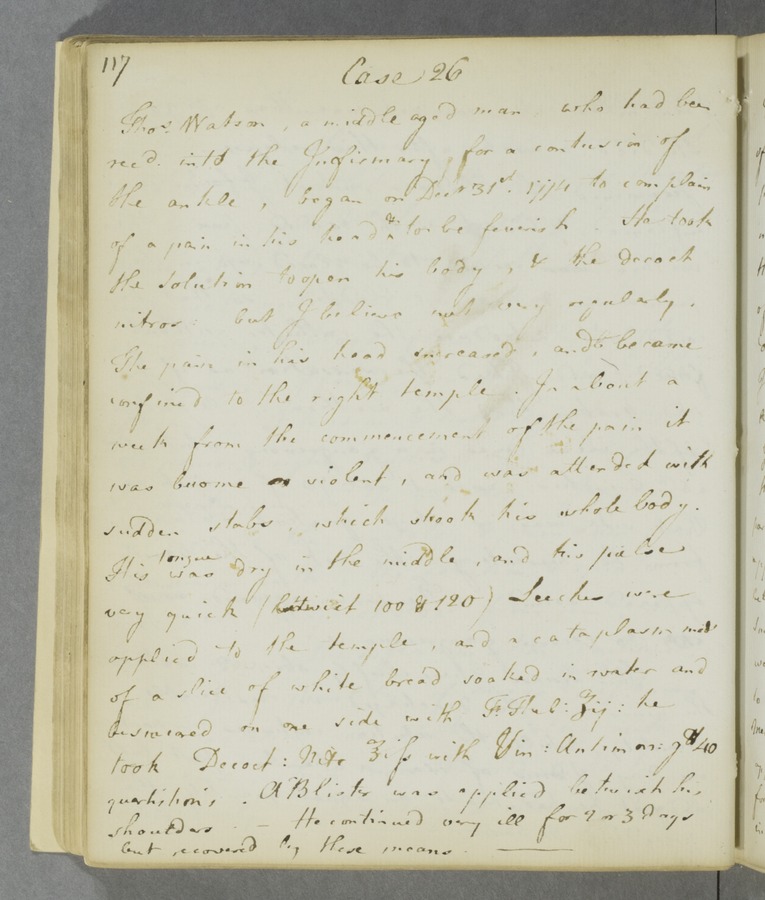 117
Case 26
Thos. Watson, a middle aged man who had been
recd. into the Infirmary, for a contusion of
the ankle, began on Decr 31st. to complain
of a pain in his head & to be feverish. He took
the solution to open his body, & the decoct
nitros: but I believe not very regularly.
The pain in his head increased, and became
confined to the right temple. In about a
week from the commencement of the pain it
was become violent, and was attended with
sudden stabs, which shook his whole body.
His tongue was dry in the middle, and his pulse
very quick (betwixt 100 & 120) Leeches were
applied to the temple, and a cataplasm
of a slice of white bread soaked in water and
besmeared on one side with he
took Decoct: Nitr ℥iſs with Vin: Antimon: gtt 40
quartis horis. A Blister was applied betwixt his
shoulders — He continued very ill for 2 or 3 Days
but recovered by these means.